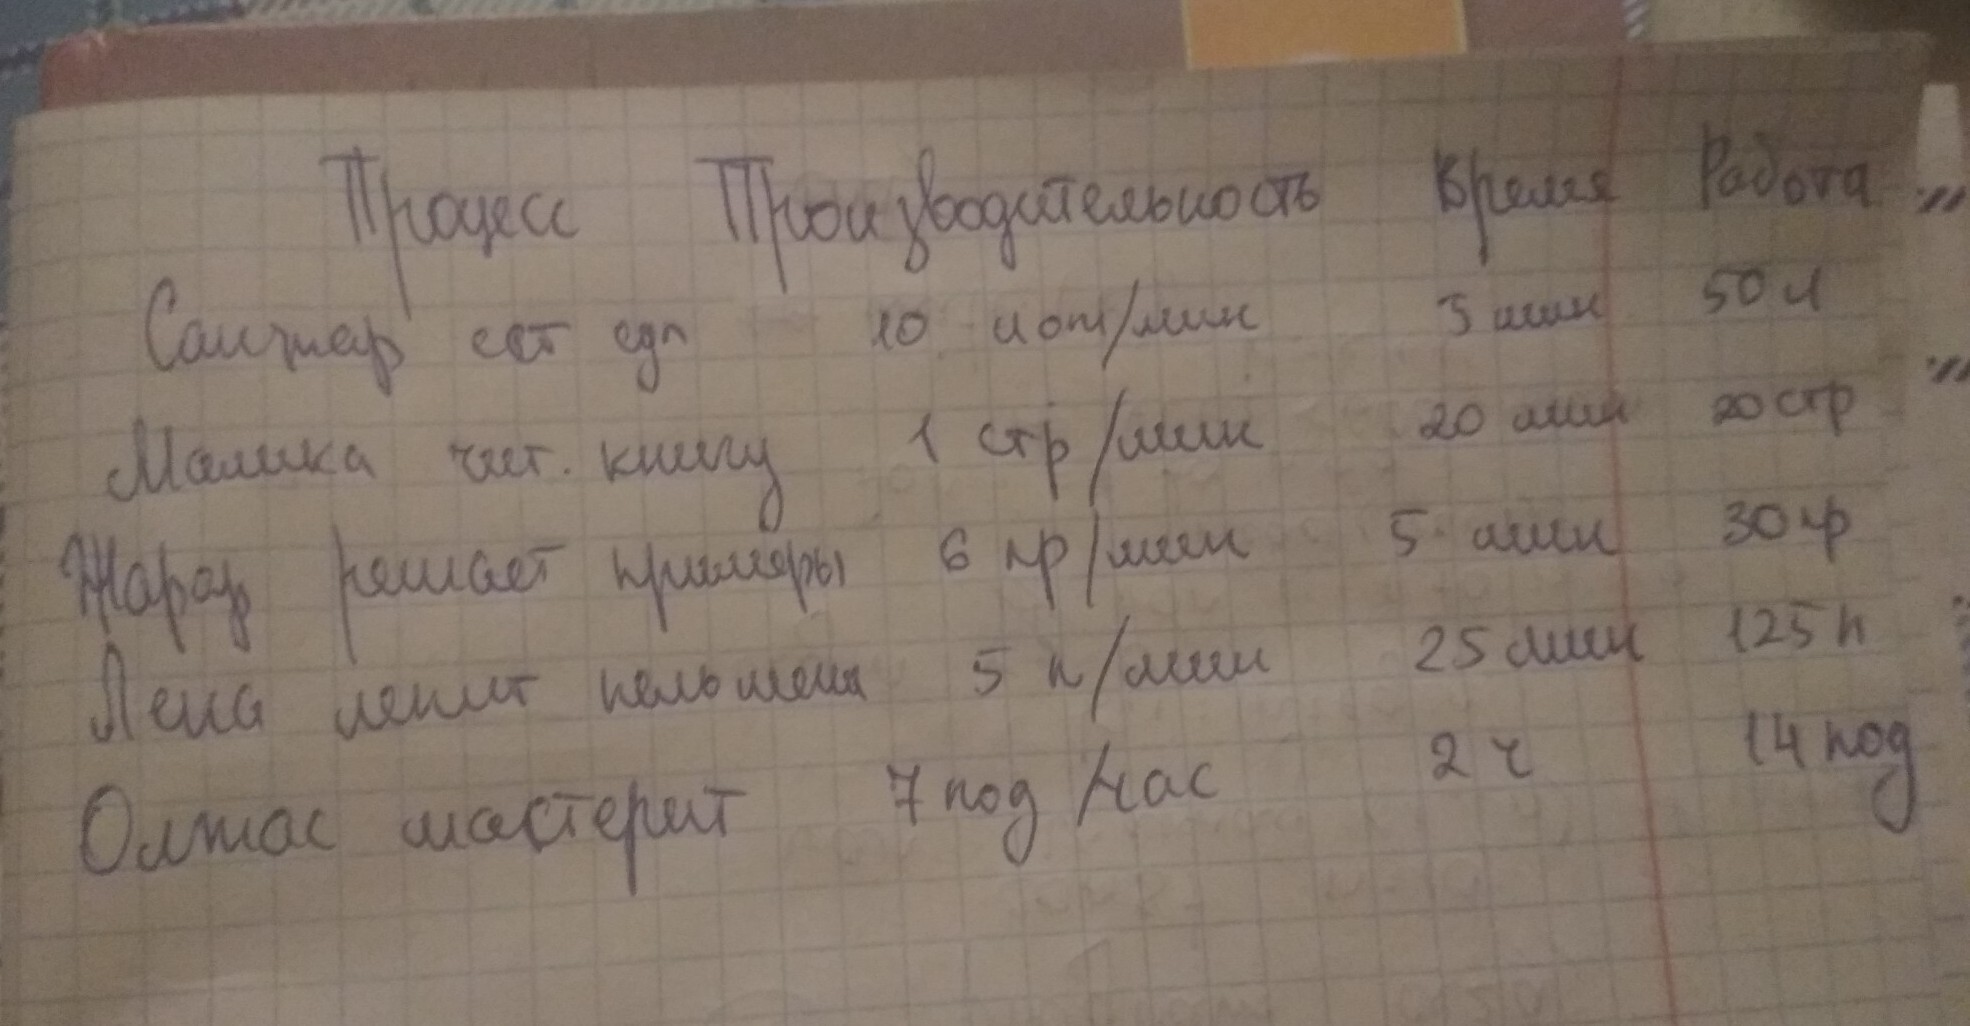 Процесс Производительность Время Работа
Санжар ест 10 лот/мин 5 мин 50 л
Малика чит. книгу 1 стр/мин 20 мин 20 стр
решает примеры 6 пр/мин 5 мин 30 пр
Лена лепит пельмени 5 п/мин 25 мин 125 п
Олжас мастерит 7 под/час 2 ч 14 под